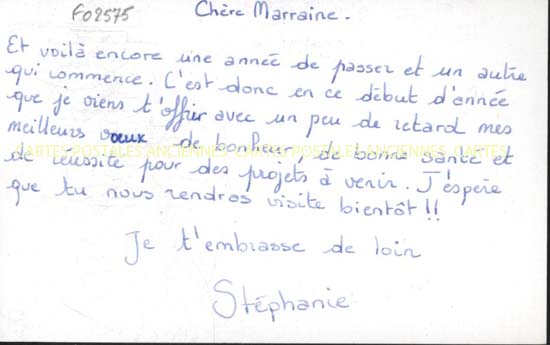 FO2575
Chère Marraine.
Et voilà encore une année de passer et un autre
qui commence. C'est donc en ce début d'année
que je viens t'offrir avec un peu de retard mes
meilleurs vœux de bonheur, de bonne santé et
CARTES POSTALES ANCIENNES CARTES POSTALES ANCIENNES CARTES
de réussite pour des projets à venir. J'espère
que tu nous rendras visite bientôt !!
Je t'embrasse de loin
Stéphanie